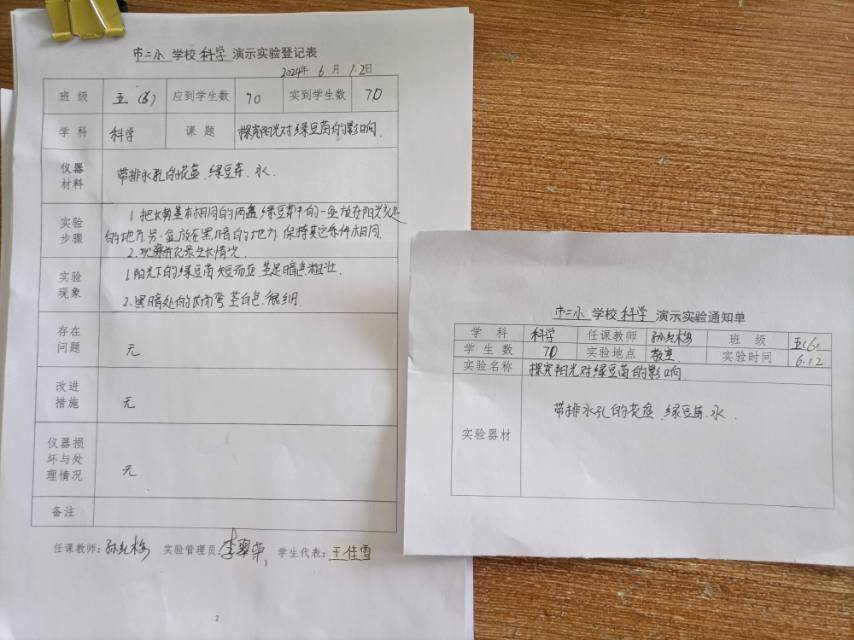 市二小 学校 科学 演示实验登记表
2024年 6 月 12日
班 级 五(6) 应到学生数 70 实到学生数 70
学 科 科学 课 题 探究阳光对绿豆苗的影响.
仪器
材料
带排水孔的花盆、绿豆芽、水.
实验
步骤
1.把长势基本相同的两盆绿豆芽中的一盆放在阳光充足
的地方,另一盆放在黑暗的地方.保持其它条件相同.
2.观察并记录生长情况.
实验
现象
1.阳光下的绿豆苗矮而直 茎是暗色粗壮.
2.黑暗处的长而弯 茎白色.很细.
存在
问题
无
改进
措施
无
仪器损
坏与处
理情况
无
备注
任课教师: 实验管理员 李翠萍, 学生代表: 王佳雪
2
市二小 学校 科学 演示实验通知单
学 科 科学 任课教师 班 级 五(6)
学 生 数 70 实验地点 教室 实验时间 6.12
实验名称 探究阳光对绿豆苗的影响
实验器材 带排水孔的花盆、绿豆芽、水.